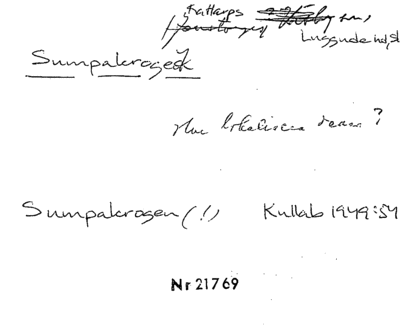 Kattarps sn,
Luggude hd, sk
Sumpakrogen
Hur lokalisera denna?
Sumpakrogen (!) Kullab 1949:54
Nr 21769